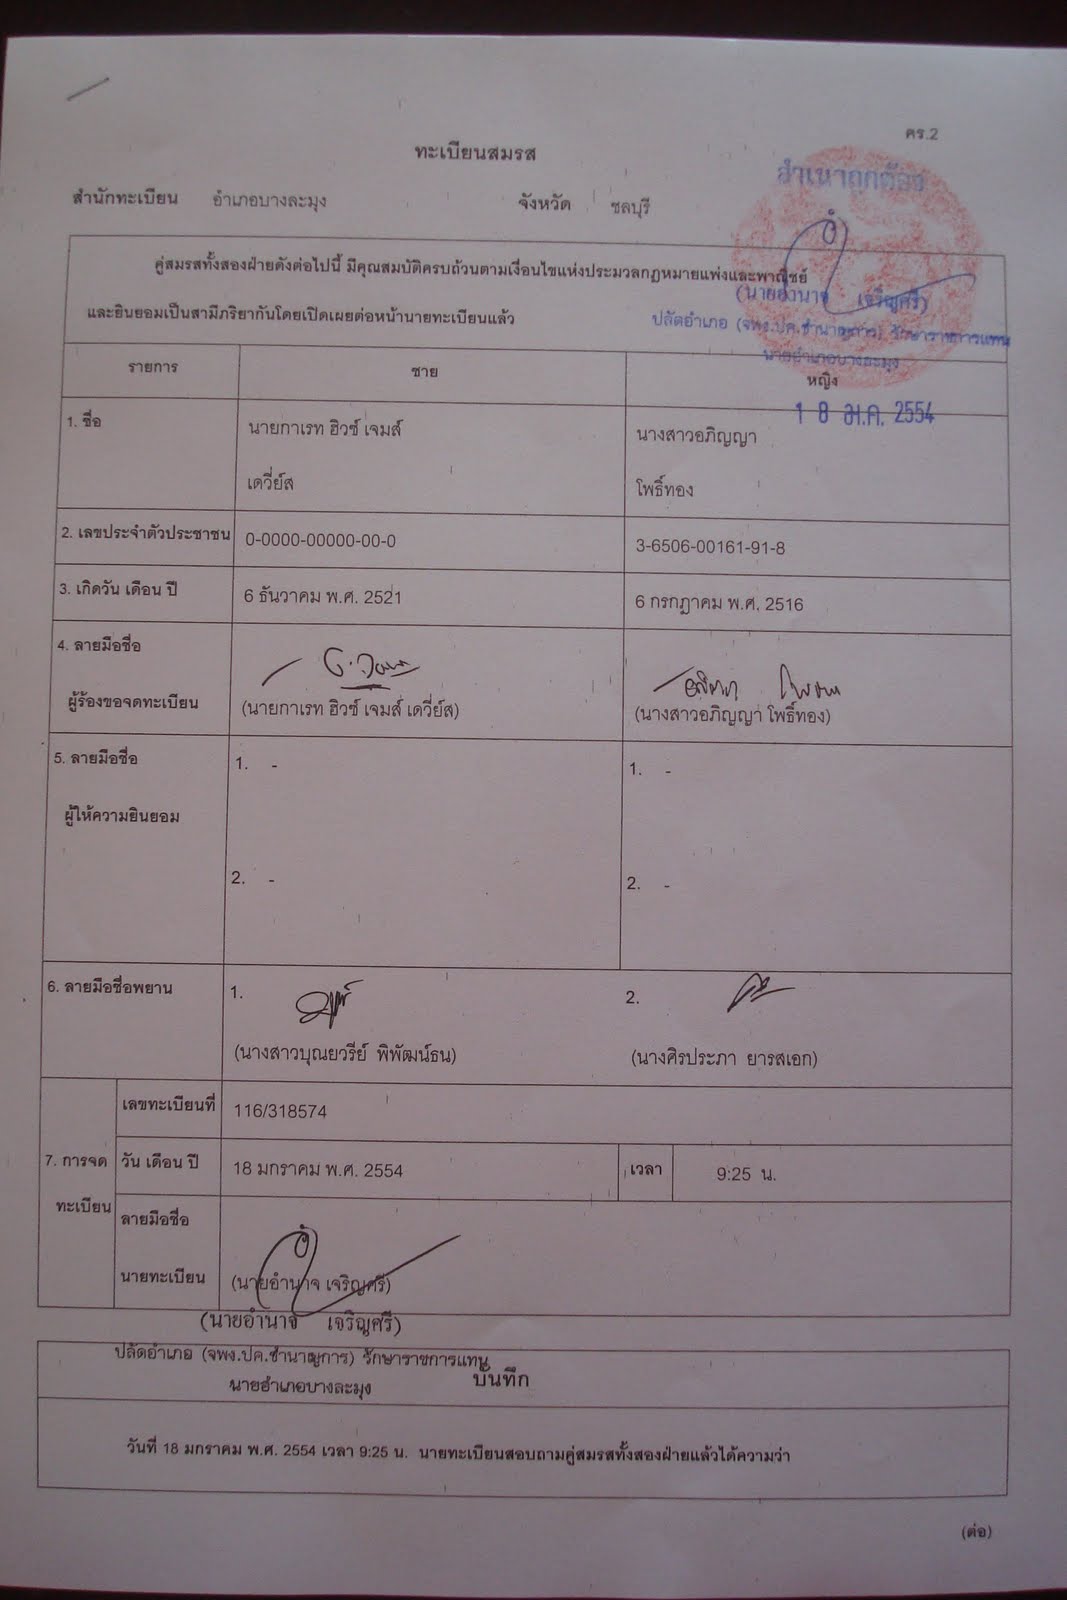 คร.2
ทะเบียนสมรส
สำเนาถูกต้อง
สำนักทะเบียน อำเภอบางละมุง จังหวัด ชลบุรี
คู่สมรสทั้งสองฝ่ายดังต่อไปนี้ มีคุณสมบัติครบถ้วนตามเงื่อนไขแห่งประมวลกฎหมายแพ่งและพาณิชย์
(นายอำนาจ เจริญศรี)
และยินยอมเป็นสามีภริยากันโดยเปิดเผยต่อหน้านายทะเบียนแล้ว
ปลัดอำเภอ (จพง.ปค.ชำนาญการ) รักษาราชการแทน
นายอำเภอบางละมุง
รายการ ชาย หญิง
18 ม.ค. 2554
1. ชื่อ นายกาเรท ฮิวซ์ เจมส์ นางสาวอภิญญา
เดวี่ย์ส โพธิ์ทอง
2. เลขประจำตัวประชาชน 0-0000-00000-00-0 3-6506-00161-91-8
3. เกิดวัน เดือน ปี 6 ธันวาคม พ.ศ. 2521 6 กรกฎาคม พ.ศ. 2516
4. ลายมือชื่อ
ผู้ร้องขอจดทะเบียน (นายกาเรท ฮิวซ์ เจมส์ เดวี่ย์ส) (นางสาวอภิญญา โพธิ์ทอง)
5. ลายมือชื่อ 1. - 1. -
ผู้ให้ความยินยอม
2. - 2. -
6. ลายมือชื่อพยาน 1. 2.
(นางสาวบุณยวรีย์ พิพัฒน์ธน) (นางศิรประภา ยารสเอก)
เลขทะเบียนที่ 116/318574
7. การจด วัน เดือน ปี 18 มกราคม พ.ศ. 2554 เวลา 9:25 น.
ทะเบียน ลายมือชื่อ
นายทะเบียน (นายอำนาจ เจริญศรี)
(นายอำนาจ เจริญศรี)
ปลัดอำเภอ (จพง.ปค.ชำนาญการ) รักษาราชการแทน
นายอำเภอบางละมุง บันทึก
วันที่ 18 มกราคม พ.ศ. 2554 เวลา 9:25 น. นายทะเบียนสอบถามคู่สมรสทั้งสองฝ่ายแล้วได้ความว่า
(ต่อ)